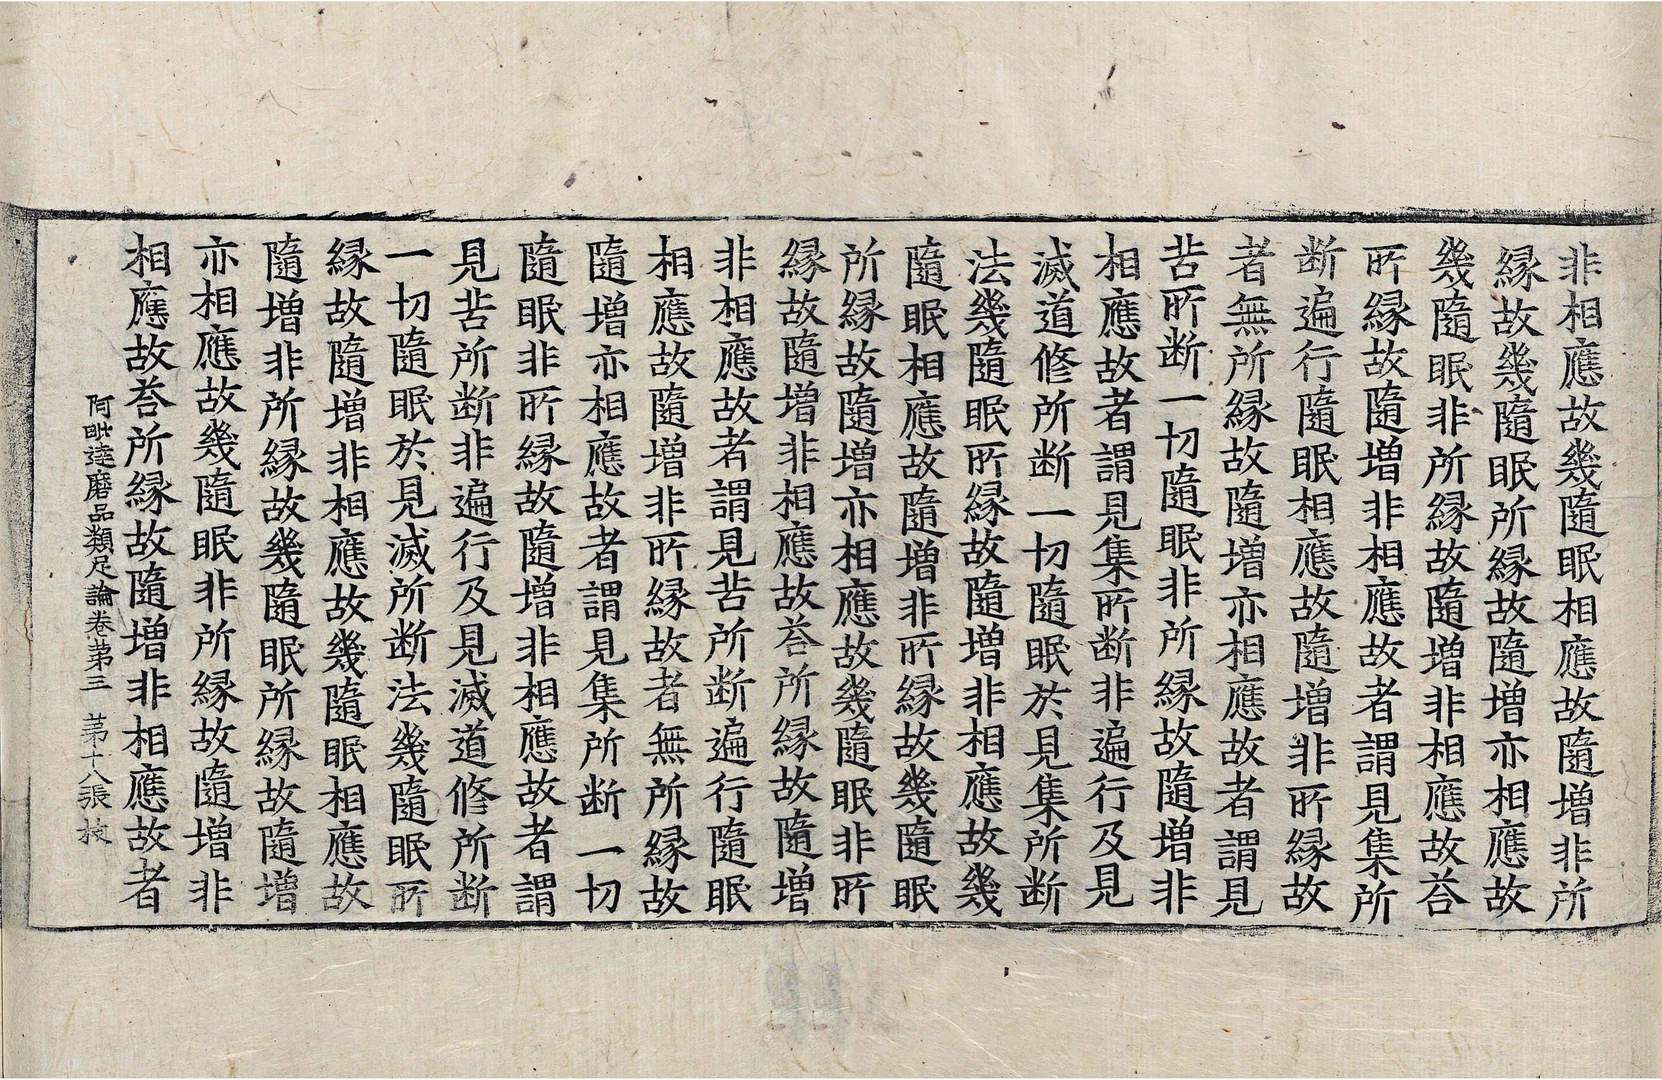 非相應故幾隨眠相應故隨增非所
縁故幾隨眠所縁故隨增亦相應故
幾隨眠非所縁故隨增非相應故荅
所縁故隨增非相應故者謂見集所
断遍行隨眠相應故隨增非所縁故
者無所縁故隨增亦相應故者謂見
苦所断一切隨眠非所縁故隨增非
相應故者謂見集所断非遍行及見
滅道修所断一切隨眠於見集所断
法幾隨眠所縁故隨增非相應故幾
隨眠相應故隨增非所縁故幾隨眠
所縁故隨增亦相應故幾隨眠非所
縁故隨增非相應故荅所縁故隨增
非相應故者謂見苦所断遍行隨眠
相應故隨增非所縁故者無所縁故
隨增亦相應故者謂見集所断一切
隨眠非所縁故隨增非相應故者謂
見苦所断非遍行及見滅道修所断
一切隨眠於見滅所断法幾隨眠所
縁故隨增非相應故幾隨眠相應故
隨增非所縁故幾隨眠所縁故隨增
亦相應故幾隨眠非所縁故隨增非
相應故荅所縁故隨增非相應故者
阿毗達磨品類足論卷苐三 苐十八張 枝